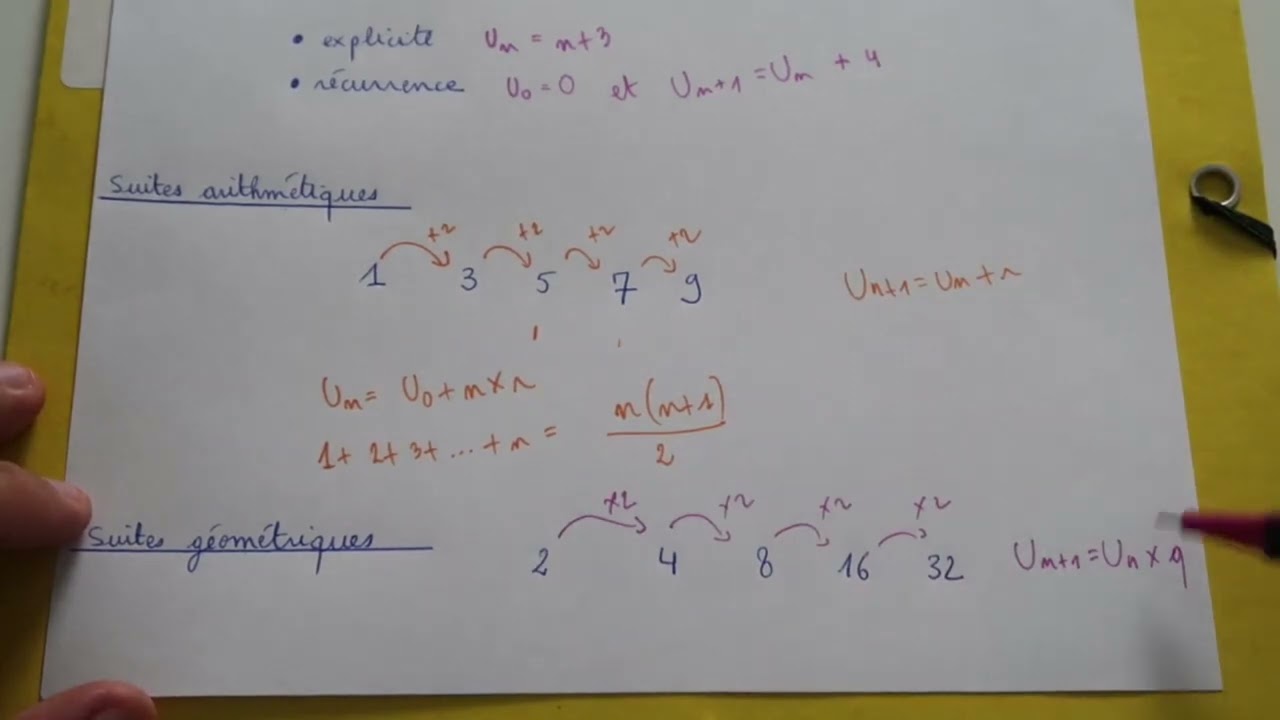 • explicite Un = n+3
• récurrence U0 = 0 et Un+1 = Un + 4
Suites arithmétiques
+2 +2 +2 +2
1 3 5 7 9
Un+1 = Un + r
Un = U0 + n × r
1+ 2+ 3+ ... + n = n(n+1) / 2
×2 ×2 ×2 ×2
Suites géométriques 2 4 8 16 32 Un+1 = Un × q